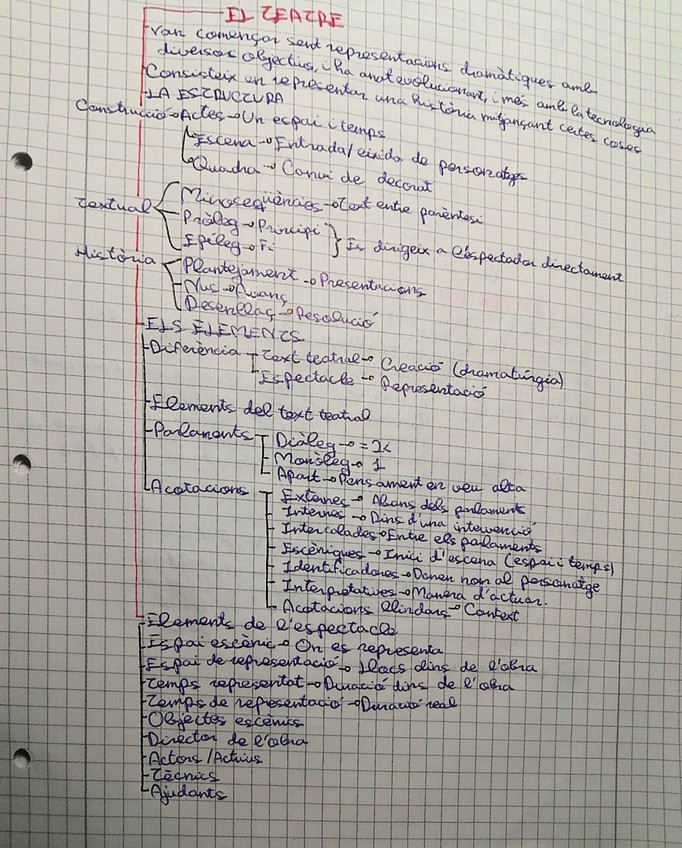 EL TEATRE
Van començar sent representacions dramàtiques amb
diversos objectius, i ha anat evolucionant, i més amb la tecnologia
Consisteix en representar una història mitjançant certes coses
LA ESTRUCTURA
Construcció → Actes → Un espai i temps
Escena → Entrada/eixida de personatges
Quadre → Canvi de decorat
Textual
Microseqüències → Text entre parèntesi
Pròleg → Principi
Epíleg → Fi
Es dirigeix a l'espectador directament
Història
Plantejament → Presentacions
Nus → Avanç
Desenllaç → Resolució
ELS ELEMENTS
Diferència
Text teatral → Creació (dramatúrgia)
Espectacle → Representació
Elements del text teatral
Parlaments
Diàleg → =2<
Monòleg → 1
Apart → Pensament en veu alta
Acotacions
Externes → Abans dels parlaments
Internes → Dins d'una intervenció
Intercalades → Entre els parlaments
Escèniques → Inici d'escena (espai i temps)
Identificadores → Donen nom al personatge
Interpretatives → Manera d'actuar.
Acotacions → Context
Elements de l'espectacle
Espai escènic → On es representa
Espai de representació → Llocs dins de l'obra
Temps representat → Duració dins de l'obra
Temps de representació → Duració real
Objectes escènics
Director de l'obra
Actors/Actrius
Tècnics
Ajudants